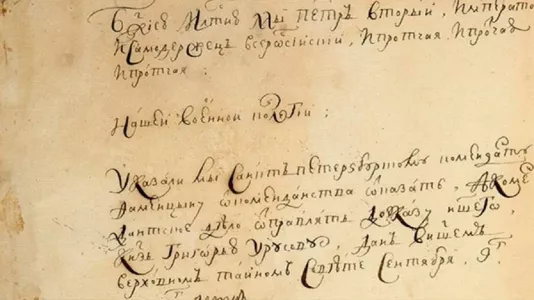 Бжиею млтию мы петръ вторый, императо
исамодержецъ всеросиискии, ипротчая ипротчая
ипротчая:
нашей военной колегии:
указали мы санктъпетербургскому коменданту
коменданства отказать, а коме
дантское дело отправлять доуказу
кнзь григорью урусову, данъ внашемъ
верховномъ таиномъ совете сентября, 9г